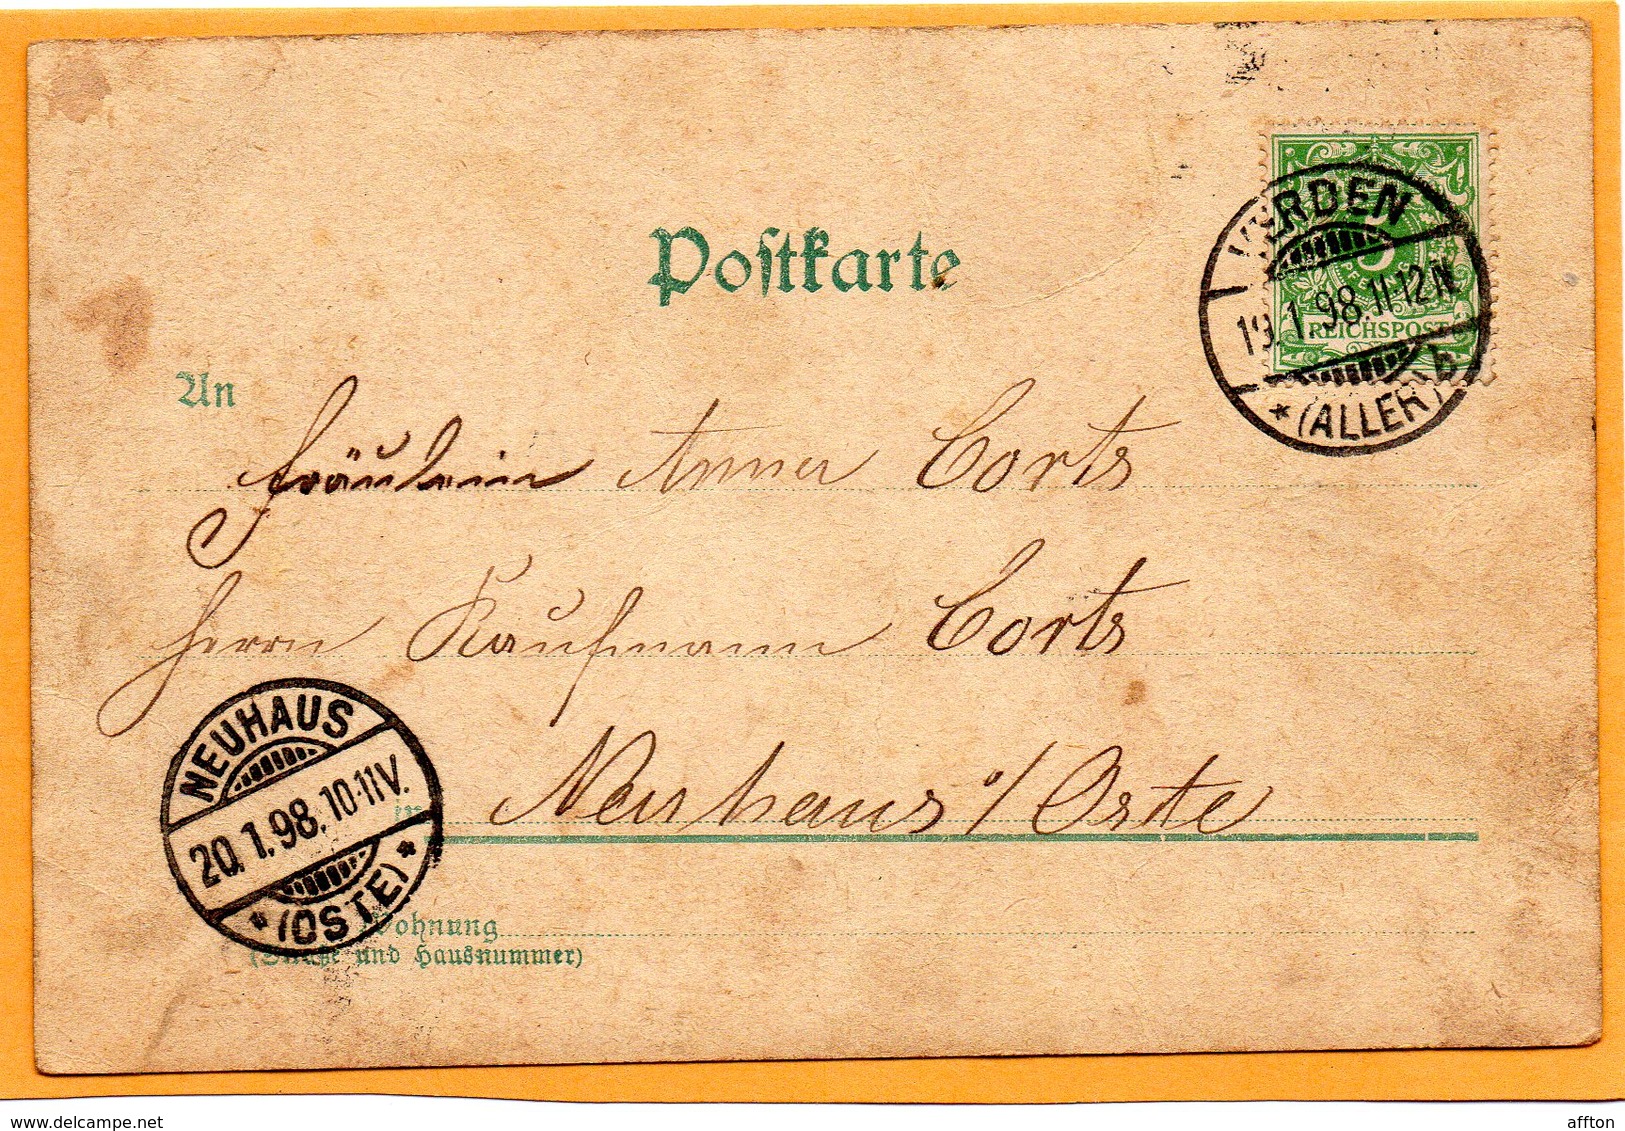 Postkarte
VERDEN
19.1.98.11-12N.
b
*(ALLER)
5
REICHSPOST
An
Fräulein Anna Corts
Herrn Kaufmann Corts
NEUHAUS
20.1.98.10-11V.
*(OSTE)*
in Neuhaus o/Oste
Wohnung
(Straße und Hausnummer)
www.delcampe.net
affton